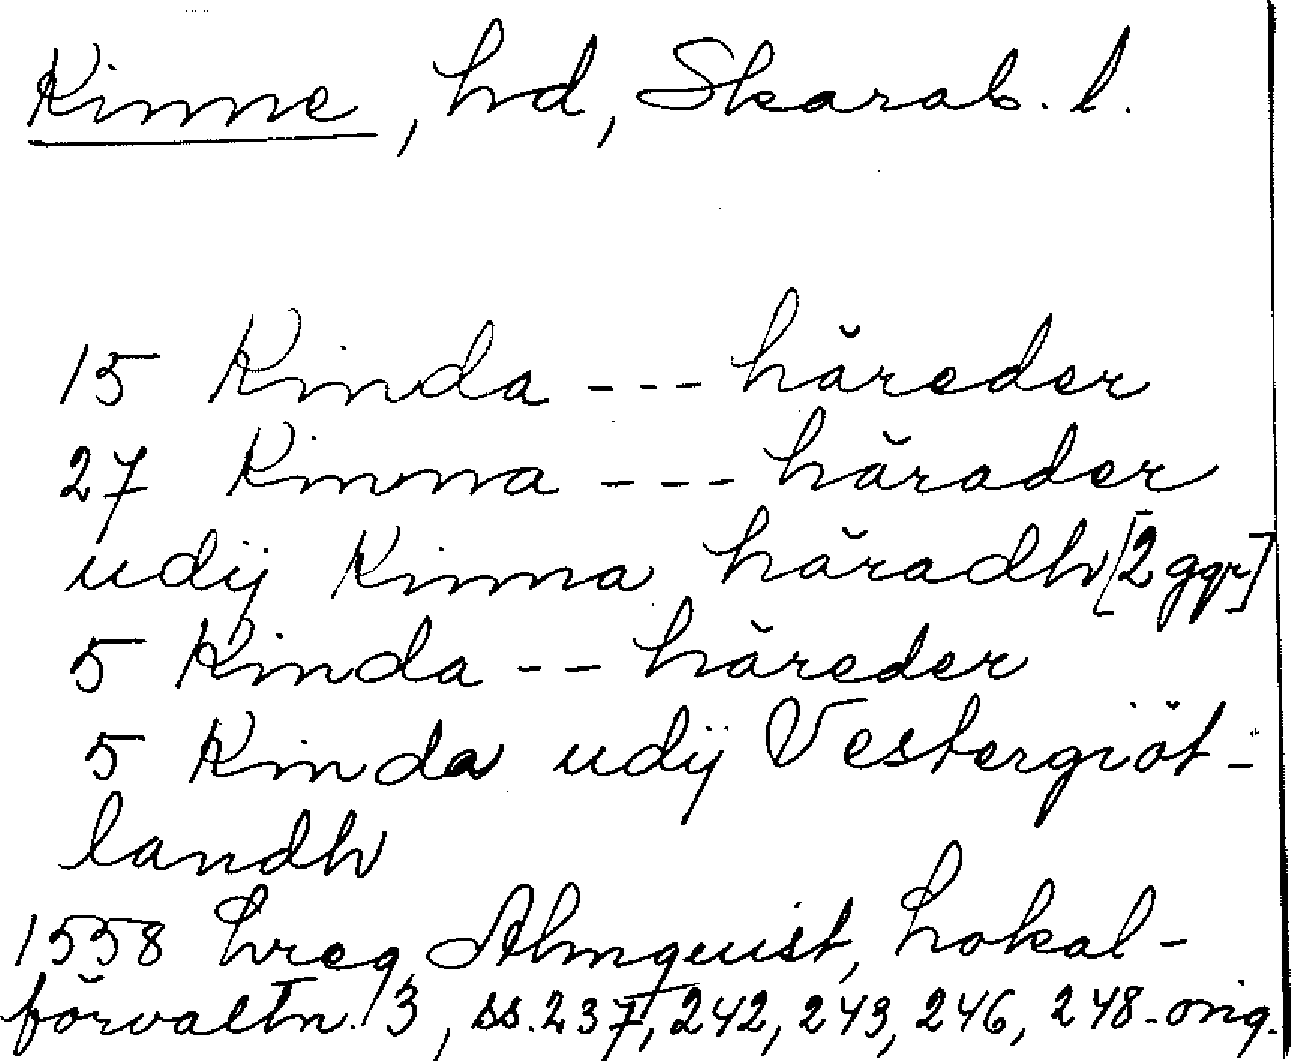 Kinne, hd, Skarab. l.
15 Kinda --- häreder
27 Kinna --- härader
udij Kinna häradh [2 ggr]
5 Kinda -- häreder
5 Kinda udij Vestergiöt-
landh
1558 hreg, Almquist, Lokal-
förvaltn. 3, ss. 237, 242, 243, 246, 248. orig.